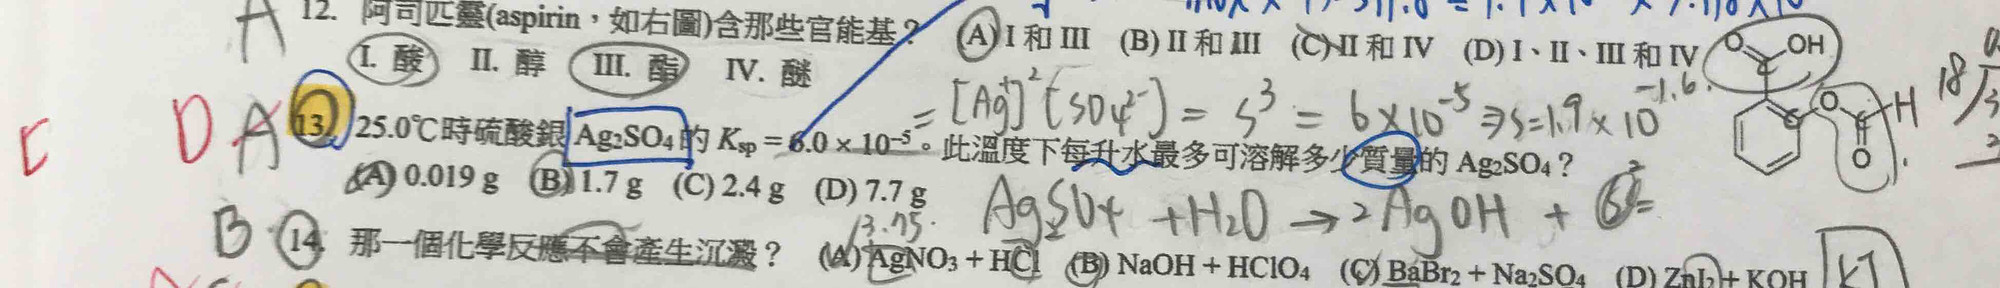 A 12. 阿司匹靈(aspirin，如右圖)含那些官能基？ (A) I 和 III (B) II 和 III (C) II 和 IV (D) I、II、III 和 IV
I. 酸 II. 醇 III. 酯 IV. 醚
O OH
O H
O
= [Ag⁺]²[SO₄²⁻] = S³ = 6×10⁻⁵ ⇒ S=1.9×10^-1.6
D A 13. 25.0℃時硫酸銀 Ag₂SO₄ 的 Ksp = 6.0 × 10⁻⁵。此溫度下每升水最多可溶解多少質量的 Ag₂SO₄？
(A) 0.019 g (B) 1.7 g (C) 2.4 g (D) 7.7 g
Ag₂SO₄ + H₂O → 2AgOH +
B 14. 那一個化學反應不會產生沉澱？ (A) AgNO₃ + HCl (B) NaOH + HClO₄ (C) BaBr₂ + Na₂SO₄ (D) ZnI₂ + KOH